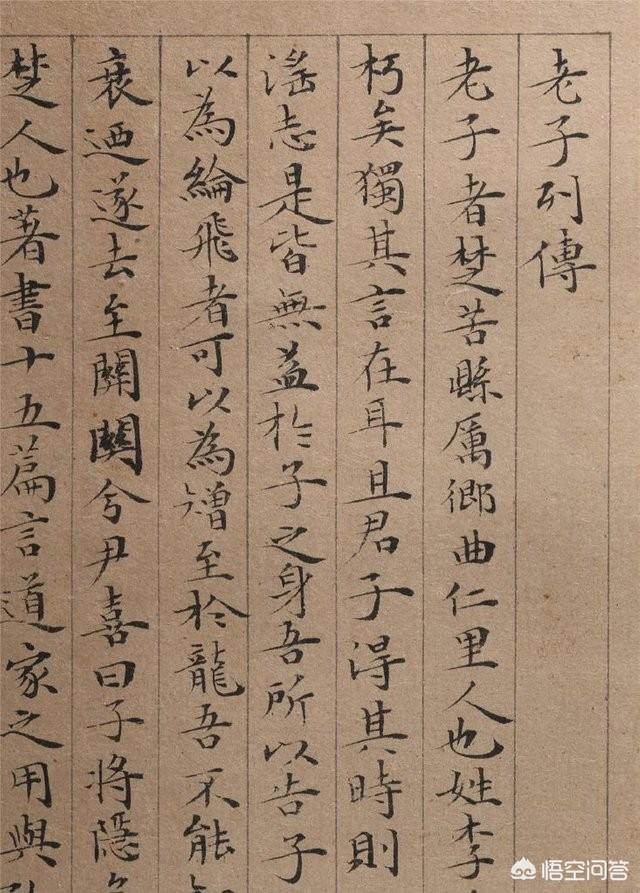 老子列傳
老子者楚苦縣厲鄉曲仁里人也姓李
朽矣獨其言在耳且君子得其時則
淫志是皆無益於子之身吾所以告子
以為綸飛者可以為矰至於龍吾不能知
衰迺遂去至關關令尹喜曰子將隱矣
楚人也著書十五篇言道家之用與
悟空问答